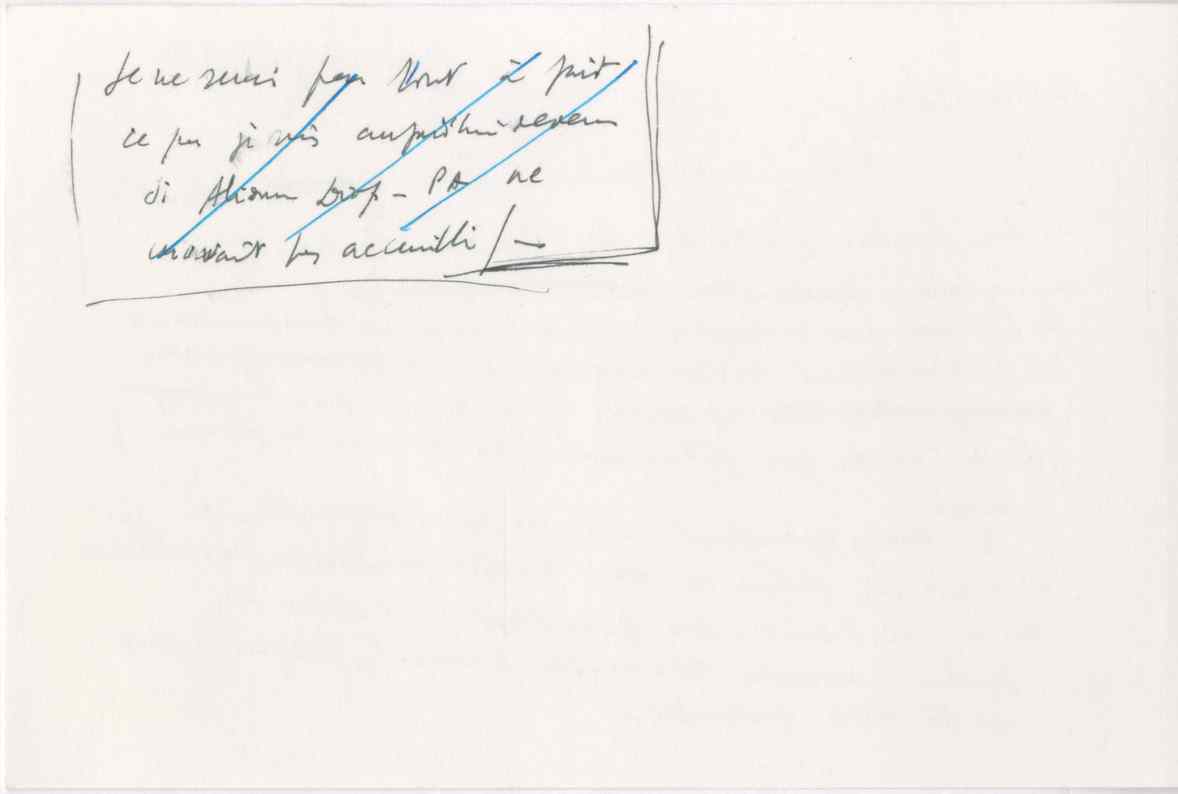 Je ne serai pas tout à fait
ce que je suis aujourd'hui devenu
si Alioune Diop – PA ne
m'avait pas accueilli / –